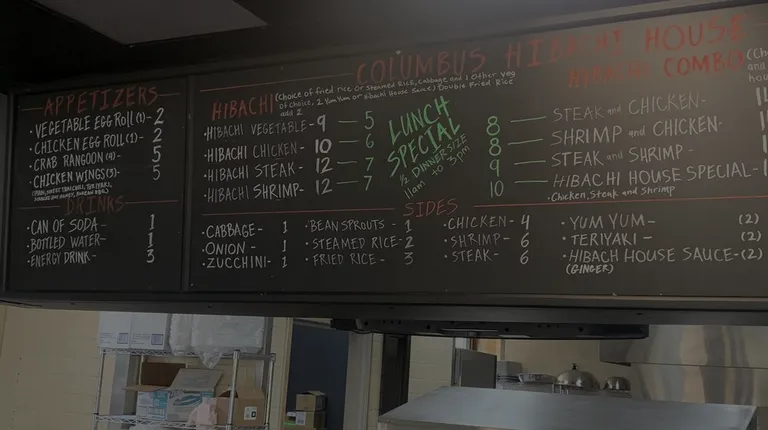 COLUMBUS HIBACHI HOUSE
APPETIZERS
• VEGETABLE EGG ROLL (1) - 2
• CHICKEN EGG ROLL (1) - 2
• CRAB RANGOON (4) - 5
• CHICKEN WINGS (5) - 5
DRINKS
• CAN OF SODA - 1
• BOTTLED WATER - 1
• ENERGY DRINK - 3
HIBACHI (Choice of fried rice Or Steamed Rice, Cabbage and 1 Other veg
of choice, 2 Yum Yum or Hibachi House Sauce) Double Fried Rice
add 2
• HIBACHI VEGETABLE - 9 - 5
• HIBACHI CHICKEN - 10 - 6
• HIBACHI STEAK - 12 - 7
• HIBACHI SHRIMP - 12 - 7
LUNCH
SPECIAL
1/2 DINNER SIZE
11am to 3pm
HIBACHI COMBO
8 - STEAK and CHICKEN -
8 - SHRIMP and CHICKEN -
9 - STEAK and SHRIMP -
10 - HIBACHI HOUSE SPECIAL -
Chicken, Steak and Shrimp
SIDES
• CABBAGE - 1
• ONION - 1
• ZUCCHINI - 1
• BEAN SPROUTS - 1
• STEAMED RICE - 2
• FRIED RICE - 3
• CHICKEN - 4
• SHRIMP - 6
• STEAK - 6
• YUM YUM - (2)
• TERIYAKI - (2)
• HIBACH HOUSE SAUCE - (2)
(GINGER)